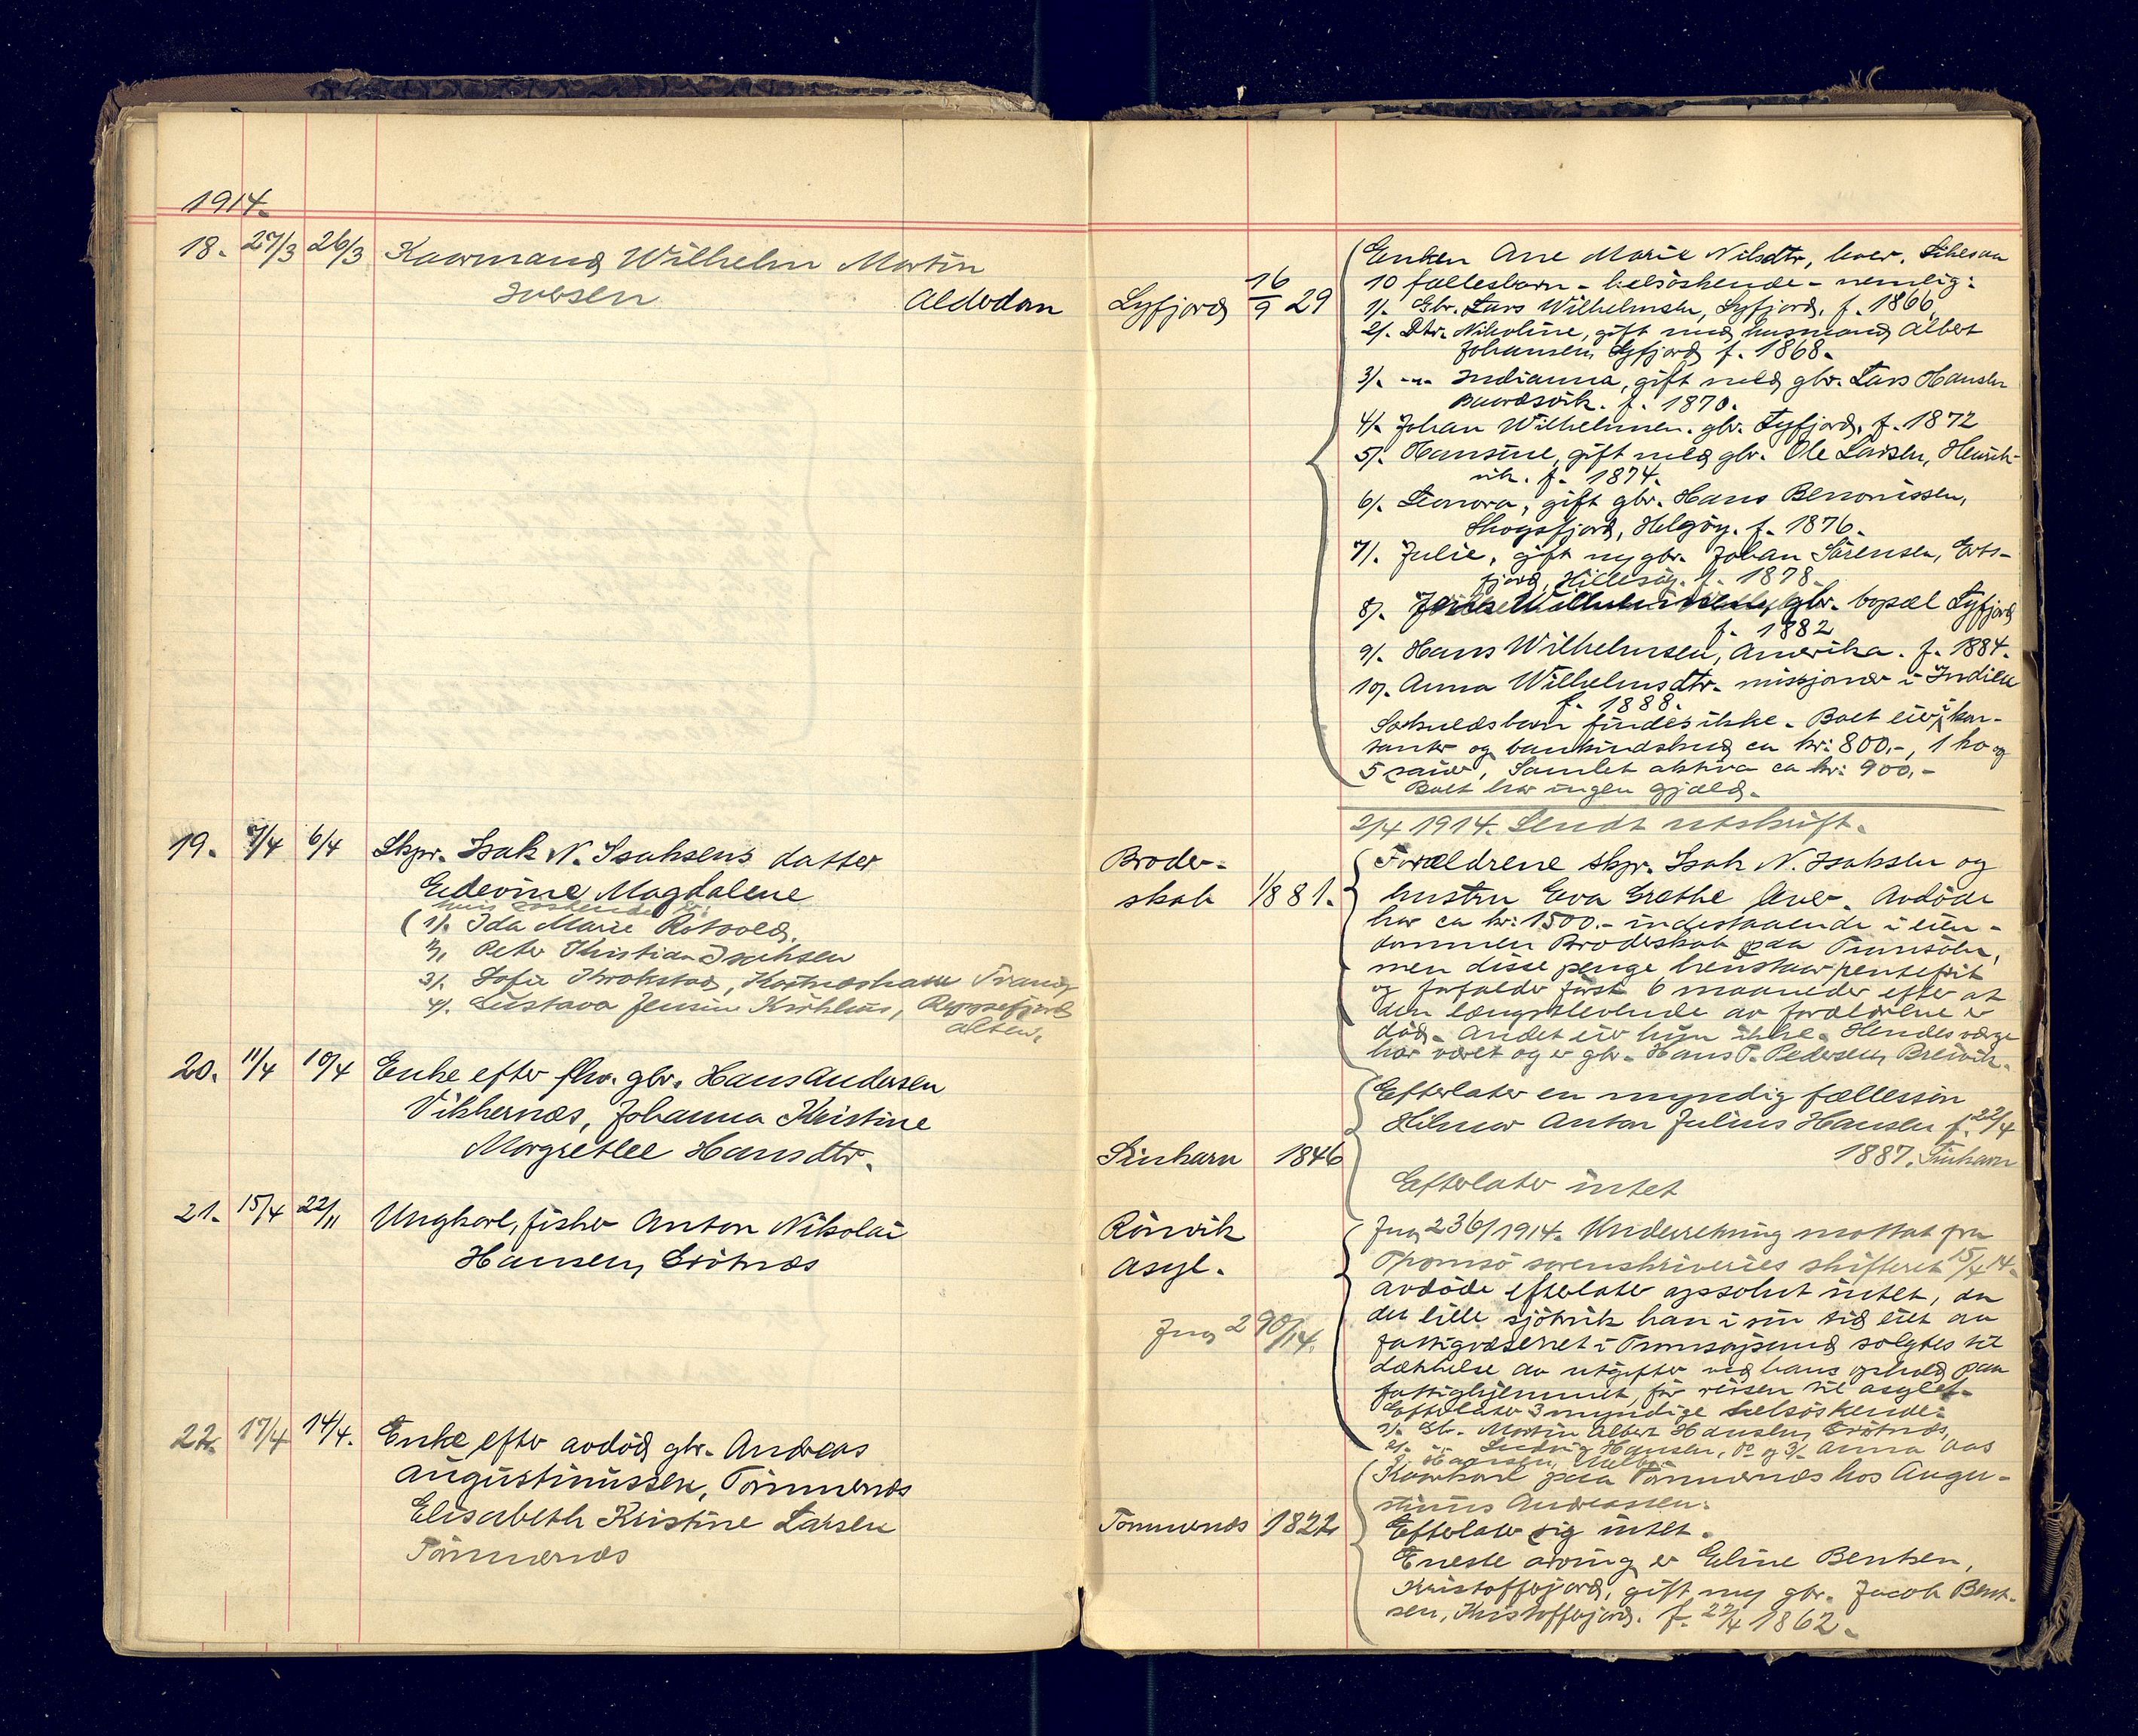 1914.
18. 27/3 26/3 Kaarmand Wilhelm Martin
Iversen
Alderdom
Lyfjord 16/9 29
Enken Ane Marie Nilsdtr, lever. Likesaa
10 fællesbarn - helsøskende - nemlig:
1/. Gbr. Lars Wilhelmsen, Lyfjord, f. 1866,
2/. Dtr. Nikoline, gift med husmand Albert
Johansen, Lyfjord f. 1868.
3/. -"- Indianna, gift med gbr. Lars Hansen
f. 1870.
4/. Johan Wilhelmsen. gbr. Lyfjord, f. 1872
5/. Hansine, gift med gbr. Ole Larsen, Henrik-
vik. f. 1874.
6/. Leonora, gift gbr. Hans Benonissen,
Skogsfjord, Helgøy. f. 1876.
7/. Julie, gift m/ gbr. Johan Sørensen, Ers-
fjord, Hillesøy. f. 1878.
8/. gbr. bopæl Lyfjord
f. 1882
9/. Hans Wilhelmsen, Amerika. f. 1884.
10/. Anna Wilhelmsdtr. missjonær i Indien
f. 1888.
Særkuldsbarn findes ikke. Boet eier i kon-
tanter og bankindskud ca kr: 800,-, 1 ko og
5 sauer, Samlet aktiva ca kr: 900,-
Boet har ingen gjæld.
2/4 1914. Sendt utskrift.
19. 7/4 6/4 Skpr. Isak N. Isaksens datter
Edevine Magdalene
hvis søskende er:
(1/. Ida Marie Rotvold,
2/, Peter Kristian Isaksen
3/. Sofie Krokstad,
4/. Gustava Jensine Repsefjord
Alten.
Broder-
skab 1/8 81.
Forældrene skpr. Isak N. Isaksen og
hustru Eva Grethe lever. Avdøde
har ca kr: 1500.- indestaaende i eien-
dommen Broderskab paa Tromsøen,
men disse penge henstaar rentefrit
og forfalder først 6 maaneder efter at
den længstlevende av forældrene er
død. Andet eier hun ikke. Hendes værge
har været og er gbr. Hans P. Pedersen, Breivik.
20. 11/4 10/4 Enke efter fhv. gbr. Hans Andersen
Vikkernæs, Johanna Kristine
Margrethe Hansdtr.
Finham 1846
Efterlater en myndig fællessøn
Hilmar Anton Julius Hansen f. 22/4
1887.
Efterlater intet
21. 15/4 22/11 Ungkarl, fisker Anton Nikolai
Hansen, Grötnæs
Rönvik
Asyl.
Jnr 290/14.
Jnr 236/1914. Underretning mottat fra
Tromsö sorenskriveries skifteret 15/4 14.
Avdöde efterlater apsolut intet, da
det lille sjöbruk han i sin tid eiet av
fattigvæsenet i Tromsøysund solgtes til
dækkelse av utgifter ved hans ophold paa
fattighjemmet, før reisen til asylet.
Efterlater 3 myndige helsøskende:
1/. Gbr. Martin Albert Hansen, Grötnæs,
2/. -"- Ludvig Hansen, do og 3/. Anna Aas
22. 17/4 14/4. Enke efter avdöd gbr. Andreas
Augustinussen, Tönnernæs
Elisabeth Kristine Larsen
Tönnernæs
Tönnernæs 1822
Kaarkarl paa Tönnernæs hos Augu-
stinus Andreassen.
Efterlater sig intet.
Eneste arving er Eline Bentsen,
Kristofferjord, gift m/ gbr. Jacob Bent-
sen, Kristofferjord. f. 22/4 1862.